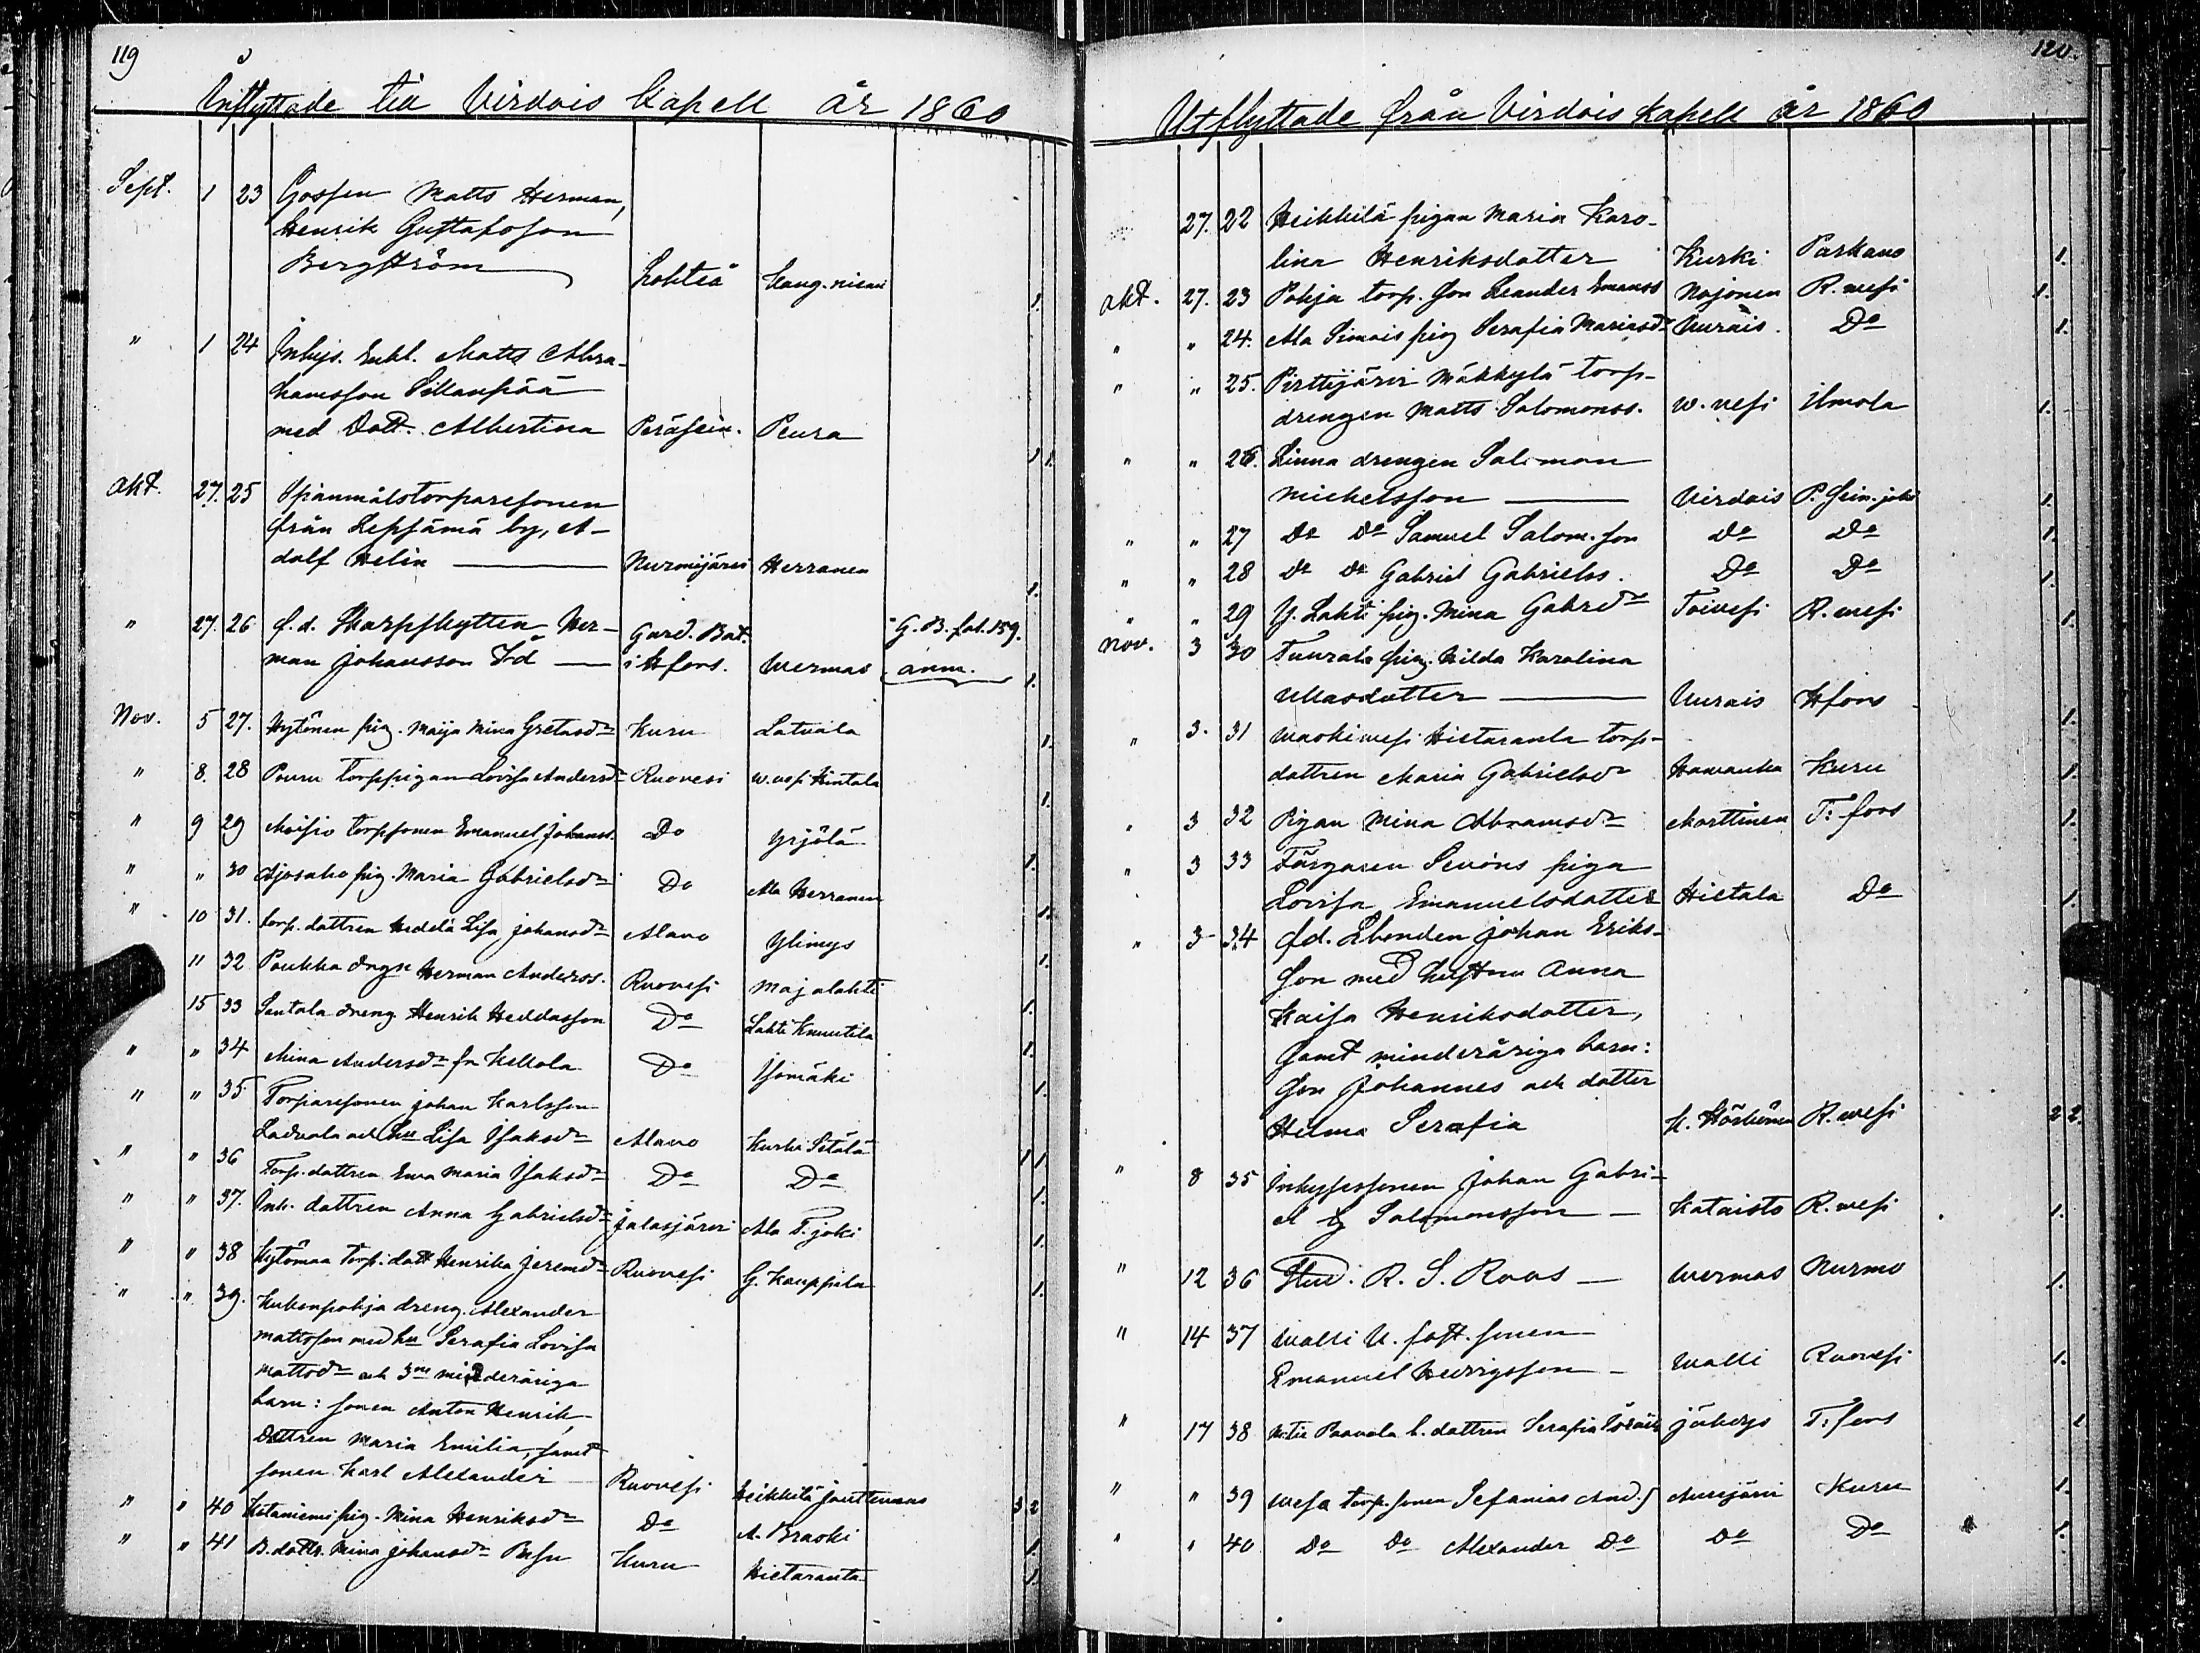 119
Inflyttade till Virdois Capell år 1860
Sept. 1 23 Gossen Matts Herman,
Henrik Gustafsson
Bergström Lohteå
1.
" 1 24 Inhys. Enkl. Matts Abra-
hamsson Sillanpää
med Dott. Albertina Peräsein. Peura 1 1.
Okt. 27. 25 Spanmålstorparesonen
från Lepsämä by, A-
dolf Helin — Nurmijärvi Herranen 1.
" 27. 26 f.d. Skarpskytten Her- Gard. Bat. G.B. fol. 159.
man Johansson — i Hfors. Wermas anm. 1.
Nov. 5 27. Hytönen pig. Maija Mina Gretasdr Kuru Latvala 1.
" 8. 28 Pouru torppigan Lovisa Andersdr Ruovesi W.vesi Hintala 1.
" 9 29 Moisio torpsonen Emanuel Johanss. Do Yrjölä 1.
" " 30 Ajosaho pig. Maria Gabrielsdr Do Ala Herranen 1.
" 10 31. torp. dottren Hedda Lisa Johansdr Alavo Ylimys 1.
11 32 Poukka drgn Herman Anderss. Ruovesi Majalahti 1.
15 33 Sentala dreng Henrik Heddasson Do Lahti Knuutila 1.
" " 34 Mina Andersdr fr Kellola Do Isomäki 1.
" " 35 Torparesonen Johan Karlsson
Ladvala och hu Lisa Isaksdr Alavo Kurki Setälä 1 1.
" " 36 Torp. dottren Ewa Maria Isaksdr Do Do 1.
" " 37. Inh. dottren Anna Gabrielsdr Jalasjärvi Ala T. joki 1.
" " 38 Kytömaa torp. dott Henrika Jeremdr Ruovesi G. Kauppila 1.
" " 39. dreng. Alexander
Mattsson med hu Serafia Lovisa
Mattsdr och 3ne minderåriga
barn: sonen Anton Henrik,
Dottren Maria Emilia, samt
sonen Karl Alexander Ruovesi Heikkilä 3 2
" " 40 Hetaniemi pig. Mina Henriksdr Do A. Braski 1.
" " 41 B. dottr. Mina Johansdr Kuru Hietaranta 1.
120.
Utflyttade från Virdois Kapell år 1860
27. 22 Heikkilä pigan Maria Karo-
lina Henriksdotter Kurki Parkano 1.
Okt. 27. 23 Pohja torp. son Leander Emanss Nojonen R. wesi 1.
" " 24. Ala Simois pig Serafia Mariasdr Uurais. Do 1.
" " 25. Pirttijärvi Mäkkylä torp-
drengen Matts Salomonss. W. vesi Ilmola 1.
" " 26. Linna drengen Salomon
Michelsson — Virdois P. Sein.joki 1.
" " 27 Do Do Samuel Salom. son Do Do 1.
" " 28 Do Do Gabriel Gabrielss. Do Do 1.
" " 29 Y. Lahti pig. Mina Gabrsdr Toivesi R. wesi 1.
Nov. 3 30 Tuurala pig. Hilda Karolina
Ullasdotter — Uurais Hfors 1.
" 3. 31 Waskiwesi Hietaranta torp-
dottren Maria Gabrielsdr Hawanka Kuru 1.
" 3 32 Pigan Mina Abramsdr Marttinen T:fors 1.
" 3 33 Färgaren Sevóns piga
Lovisa Emanuelsdotter Hietala Do 1.
" 3 34 fd. Lbonden Johan Eriks-
son med hustru Anna
Kaisa Henriksdotter,
samt minderåriga barn:
Son Johannes och dotter
Helma Serafia K. Härkönen R. wesi 2 2.
" 8 35 Inhysessonen Johan Gabri-
el Salomonsson — Kataisto R. wesi 1.
" 12 36 Stud. R. S. Roos — Wermas Nurmo 1.
" 14 37 Walli U. fost. sonen
Emanuel Hedvigsson — Walli Ruovesi 1.
" 17 38 Paavola b. dottren Serafia Jähdys T:fors 1
" " 39 Wesa torp. sonen Sefanias And.s Aurejärvi Kuru 1.
" " 40 Do Do Alexander Do Do Do 1.